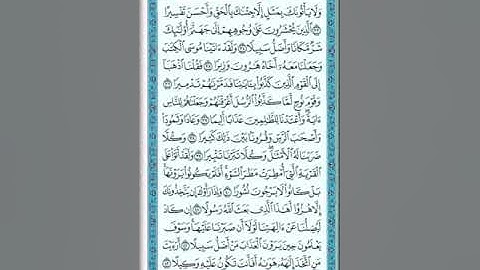 وَلَا يَأْتُونَكَ بِمَثَلٍ إِلَّا جِئْنَٰكَ بِٱلْحَقِّ وَأَحْسَنَ تَفْسِيرًا
٣٣ ٱلَّذِينَ يُحْشَرُونَ عَلَىٰ وُجُوهِهِمْ إِلَىٰ جَهَنَّمَ أُو۟لَٰٓئِكَ
شَرٌّ مَّكَانًا وَأَضَلُّ سَبِيلًا ٣٤ وَلَقَدْ ءَاتَيْنَا مُوسَى ٱلْكِتَٰبَ
وَجَعَلْنَا مَعَهُۥٓ أَخَاهُ هَٰرُونَ وَزِيرًا ٣٥ فَقُلْنَا ٱذْهَبَآ
إِلَى ٱلْقَوْمِ ٱلَّذِينَ كَذَّبُوا۟ بِـَٔايَٰتِنَا فَدَمَّرْنَٰهُمْ تَدْمِيرًا ٣٦
وَقَوْمَ نُوحٍ لَّمَّا كَذَّبُوا۟ ٱلرُّسُلَ أَغْرَقْنَٰهُمْ وَجَعَلْنَٰهُمْ لِلنَّاسِ
ءَايَةً وَأَعْتَدْنَا لِلظَّٰلِمِينَ عَذَابًا أَلِيمًا ٣٧ وَعَادًا وَثَمُودَا۟
وَأَصْحَٰبَ ٱلرَّسِّ وَقُرُونًۢا بَيْنَ ذَٰلِكَ كَثِيرًا ٣٨ وَكُلًّا
ضَرَبْنَا لَهُ ٱلْأَمْثَٰلَ وَكُلًّا تَبَّرْنَا تَتْبِيرًا ٣٩ وَلَقَدْ أَتَوْا۟ عَلَى
ٱلْقَرْيَةِ ٱلَّتِىٓ أُمْطِرَتْ مَطَرَ ٱلسَّوْءِ أَفَلَمْ يَكُونُوا۟ يَرَوْنَهَا
بَلْ كَانُوا۟ لَا يَرْجُونَ نُشُورًا ٤٠ وَإِذَا رَأَوْكَ إِن يَتَّخِذُونَكَ
إِلَّا هُزُوًا أَهَٰذَا ٱلَّذِى بَعَثَ ٱللَّهُ رَسُولًا ٤١ إِن كَادَ
لَيُضِلُّنَا عَنْ ءَالِهَتِنَا لَوْلَآ أَن صَبَرْنَا عَلَيْهَا وَسَوْفَ
يَعْلَمُونَ حِينَ يَرَوْنَ ٱلْعَذَابَ مَنْ أَضَلُّ سَبِيلًا ٤٢ أَرَءَيْتَ
مَنِ ٱتَّخَذَ إِلَٰهَهُۥ هَوَىٰهُ أَفَأَنتَ تَكُونُ عَلَيْهِ وَكِيلًا ٤٣